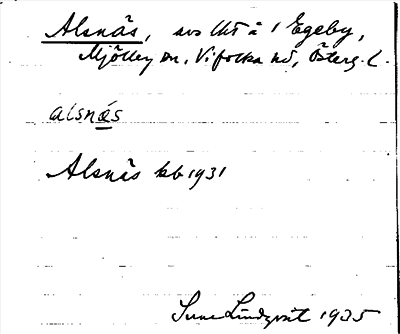 Alsnäs, avs lht å 1 Egeby,
Mjölby sn, Vifolka hd, Österg. l.
alsnäs
Alsnäs kb 1931
Sune Lindqvist 1935